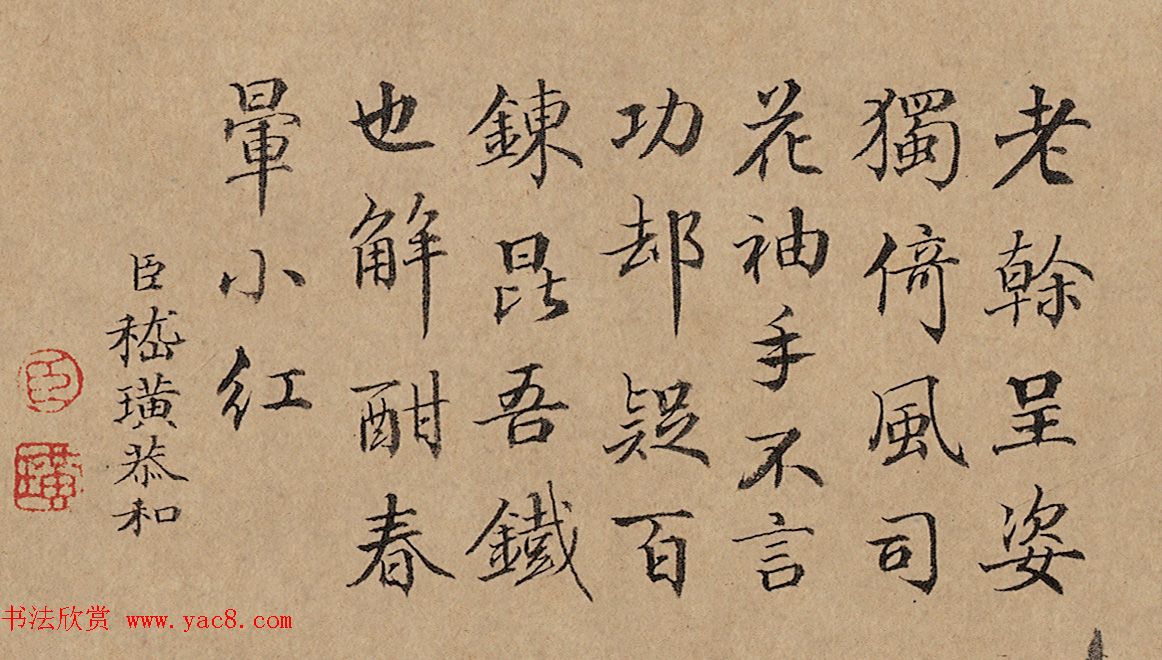 老榦呈姿
獨倚風司
花袖手不言
功却疑百
鍊昆吾鐵
也解酣春
暈小紅
臣嵇璜恭和
臣
璜
书法欣赏 www.yac8.com